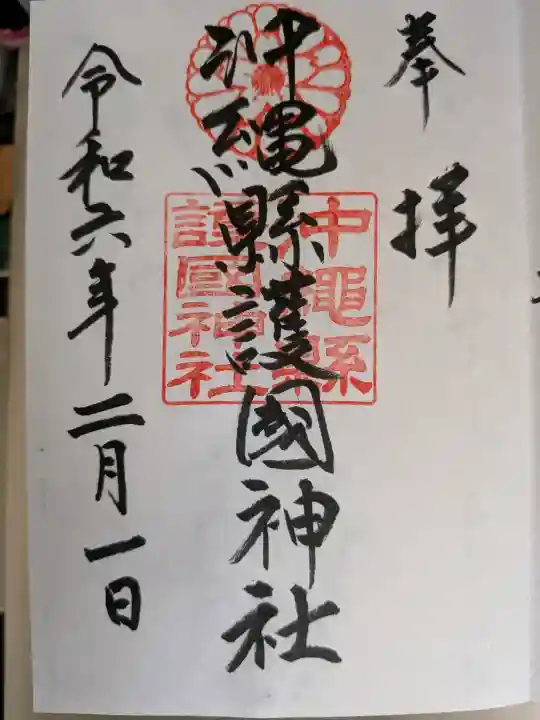 奉拝
沖縄縣護國神社
沖縄縣護國神社
令和六年二月一日